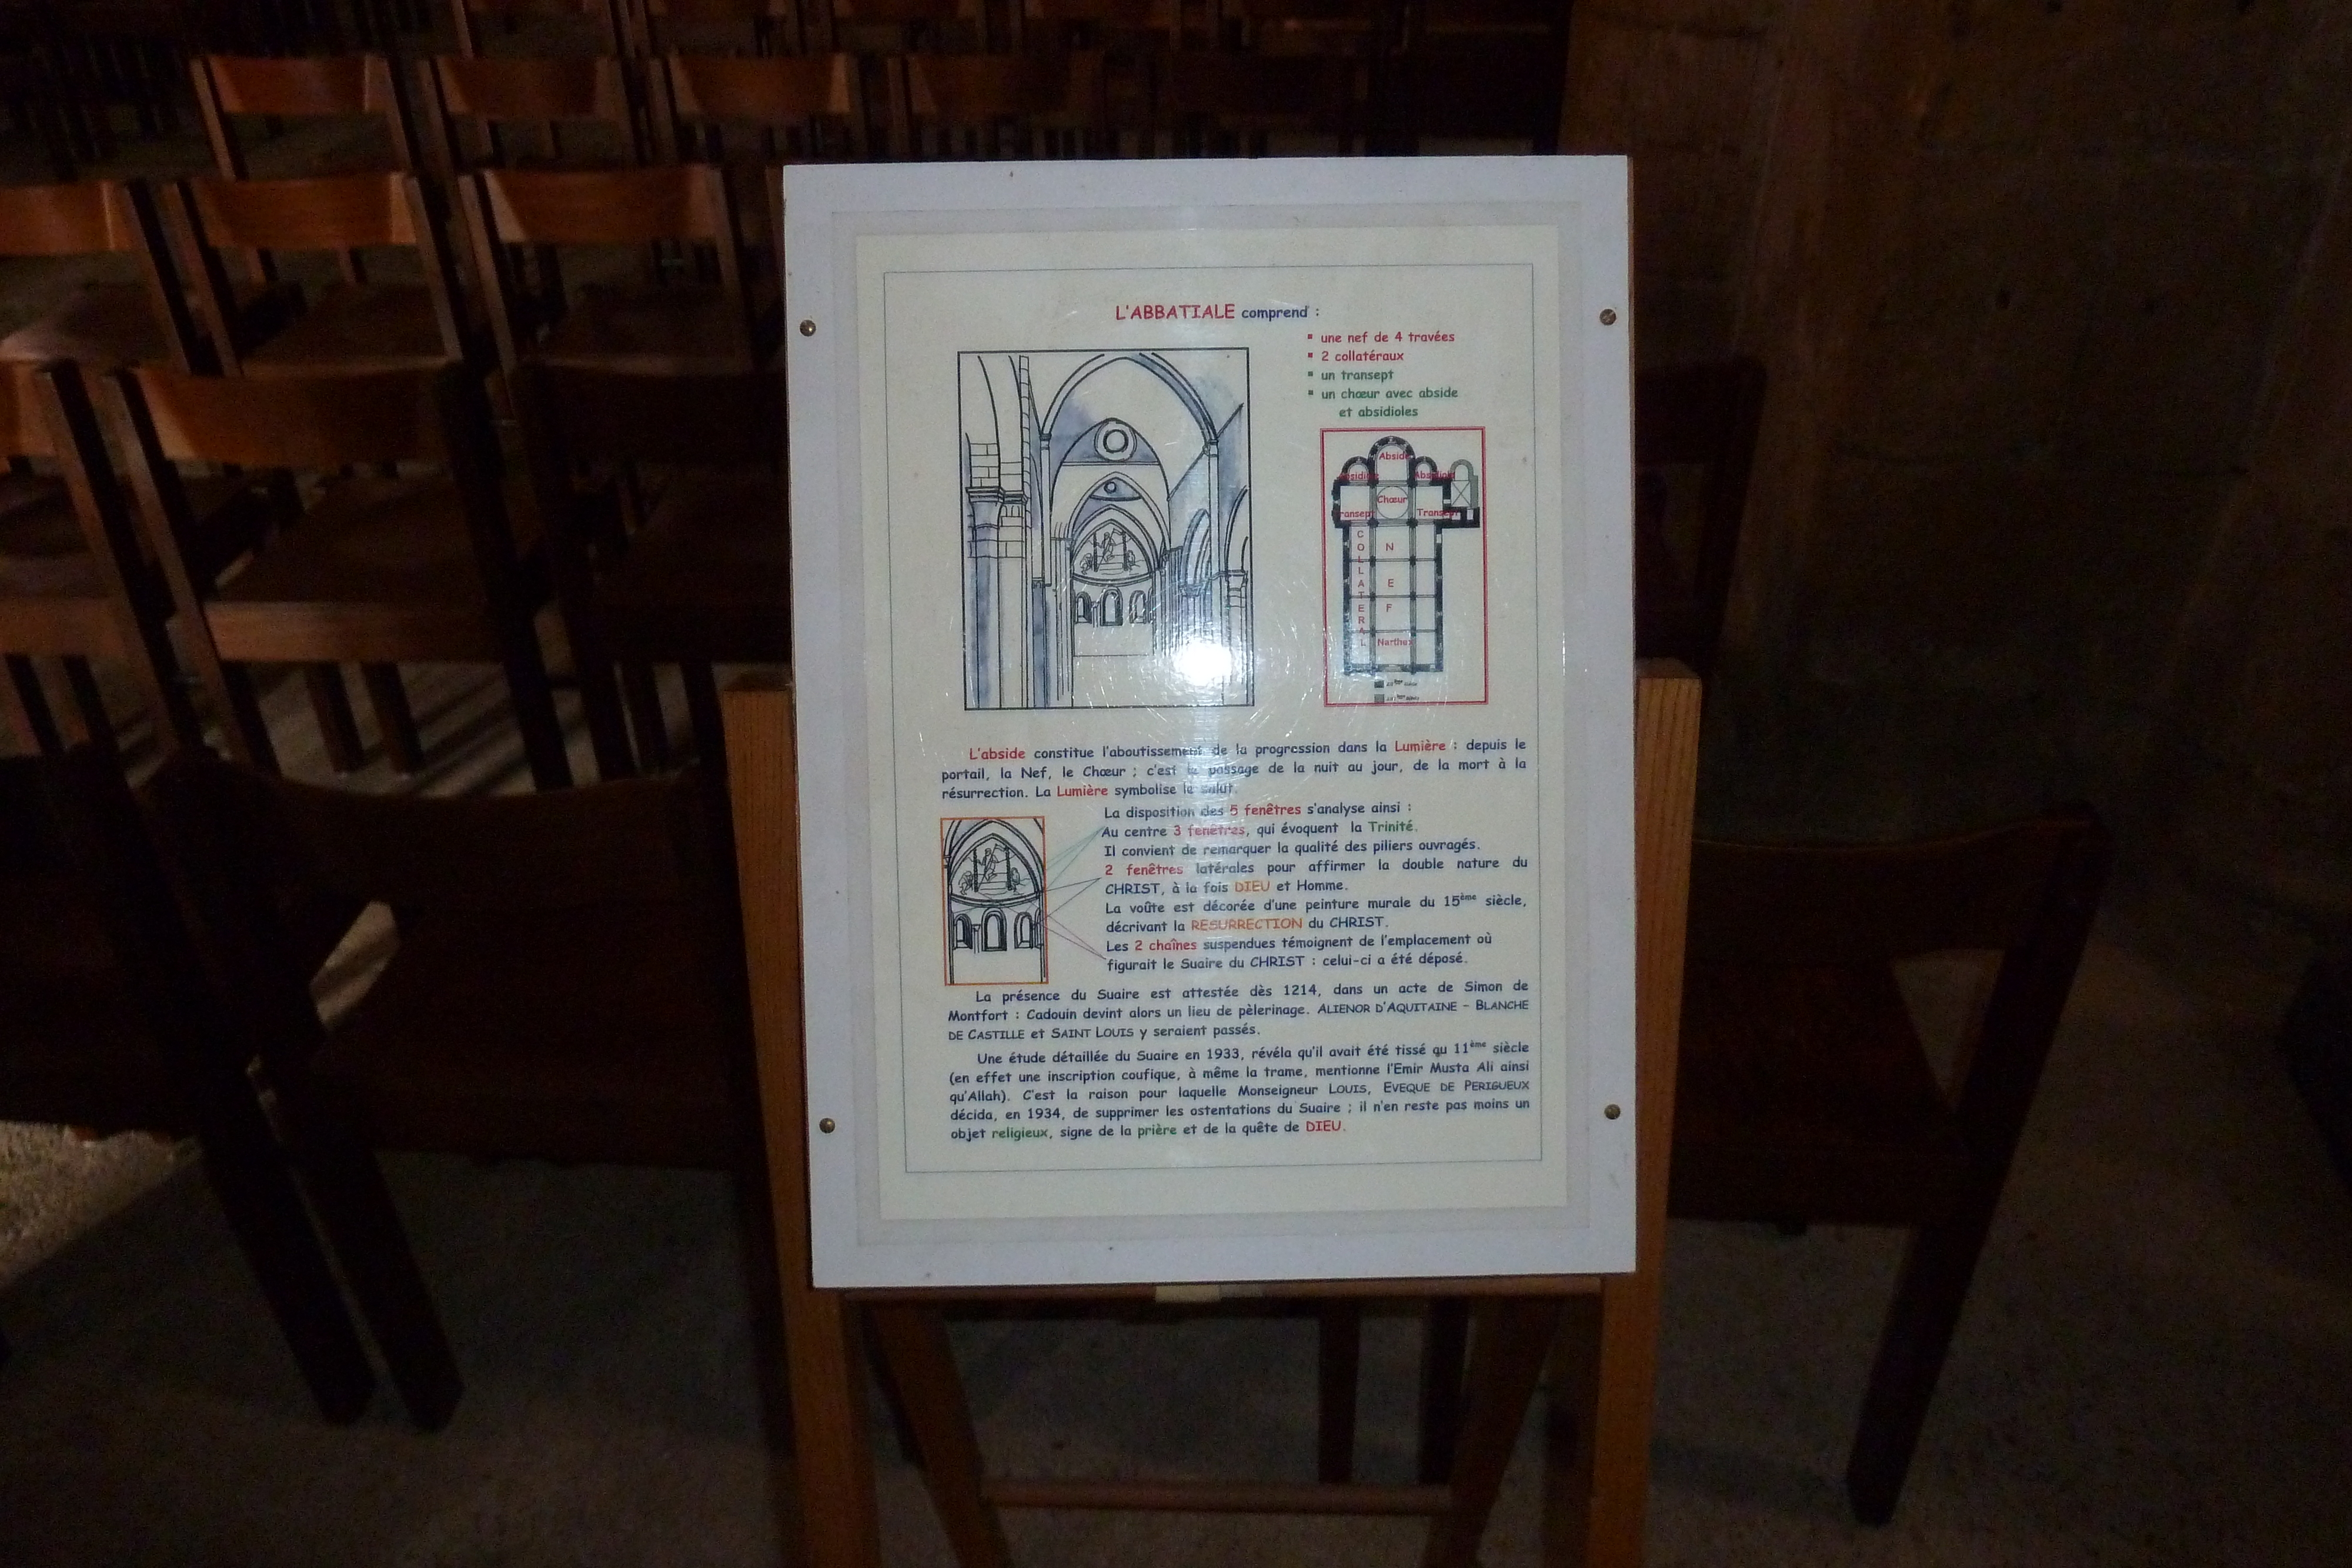 L'ABBATIALE comprend :
▪ une nef de 4 travées
▪ 2 collatéraux
▪ un transept
▪ un chœur avec abside
et absidioles
Abside
Chœur
Transept
COLLATERAL
NEF
Narthex
L'abside constitue l'aboutissement de la progression dans la Lumière : depuis le
portail, la Nef, le Chœur ; c'est le passage de la nuit au jour, de la mort à la
résurrection. La Lumière symbolise le salut.
La disposition des 5 fenêtres s'analyse ainsi :
Au centre 3 fenêtres, qui évoquent la Trinité.
Il convient de remarquer la qualité des piliers ouvragés.
2 fenêtres latérales pour affirmer la double nature du
CHRIST, à la fois DIEU et Homme.
La voûte est décorée d'une peinture murale du 15ème siècle,
décrivant la RESURRECTION du CHRIST.
Les 2 chaînes suspendues témoignent de l'emplacement où
figurait le Suaire du CHRIST : celui-ci a été déposé.
La présence du Suaire est attestée dès 1214, dans un acte de Simon de
Montfort : Cadouin devint alors un lieu de pèlerinage. ALIENOR D'AQUITAINE – BLANCHE
DE CASTILLE et SAINT LOUIS y seraient passés.
Une étude détaillée du Suaire en 1933, révéla qu'il avait été tissé au 11ème siècle
(en effet une inscription coufique, à même la trame, mentionne l'Emir Musta Ali ainsi
qu'Allah). C'est la raison pour laquelle Monseigneur LOUIS, EVEQUE DE PERIGUEUX
décida, en 1934, de supprimer les ostentations du Suaire ; il n'en reste pas moins un
objet religieux, signe de la prière et de la quête de DIEU.